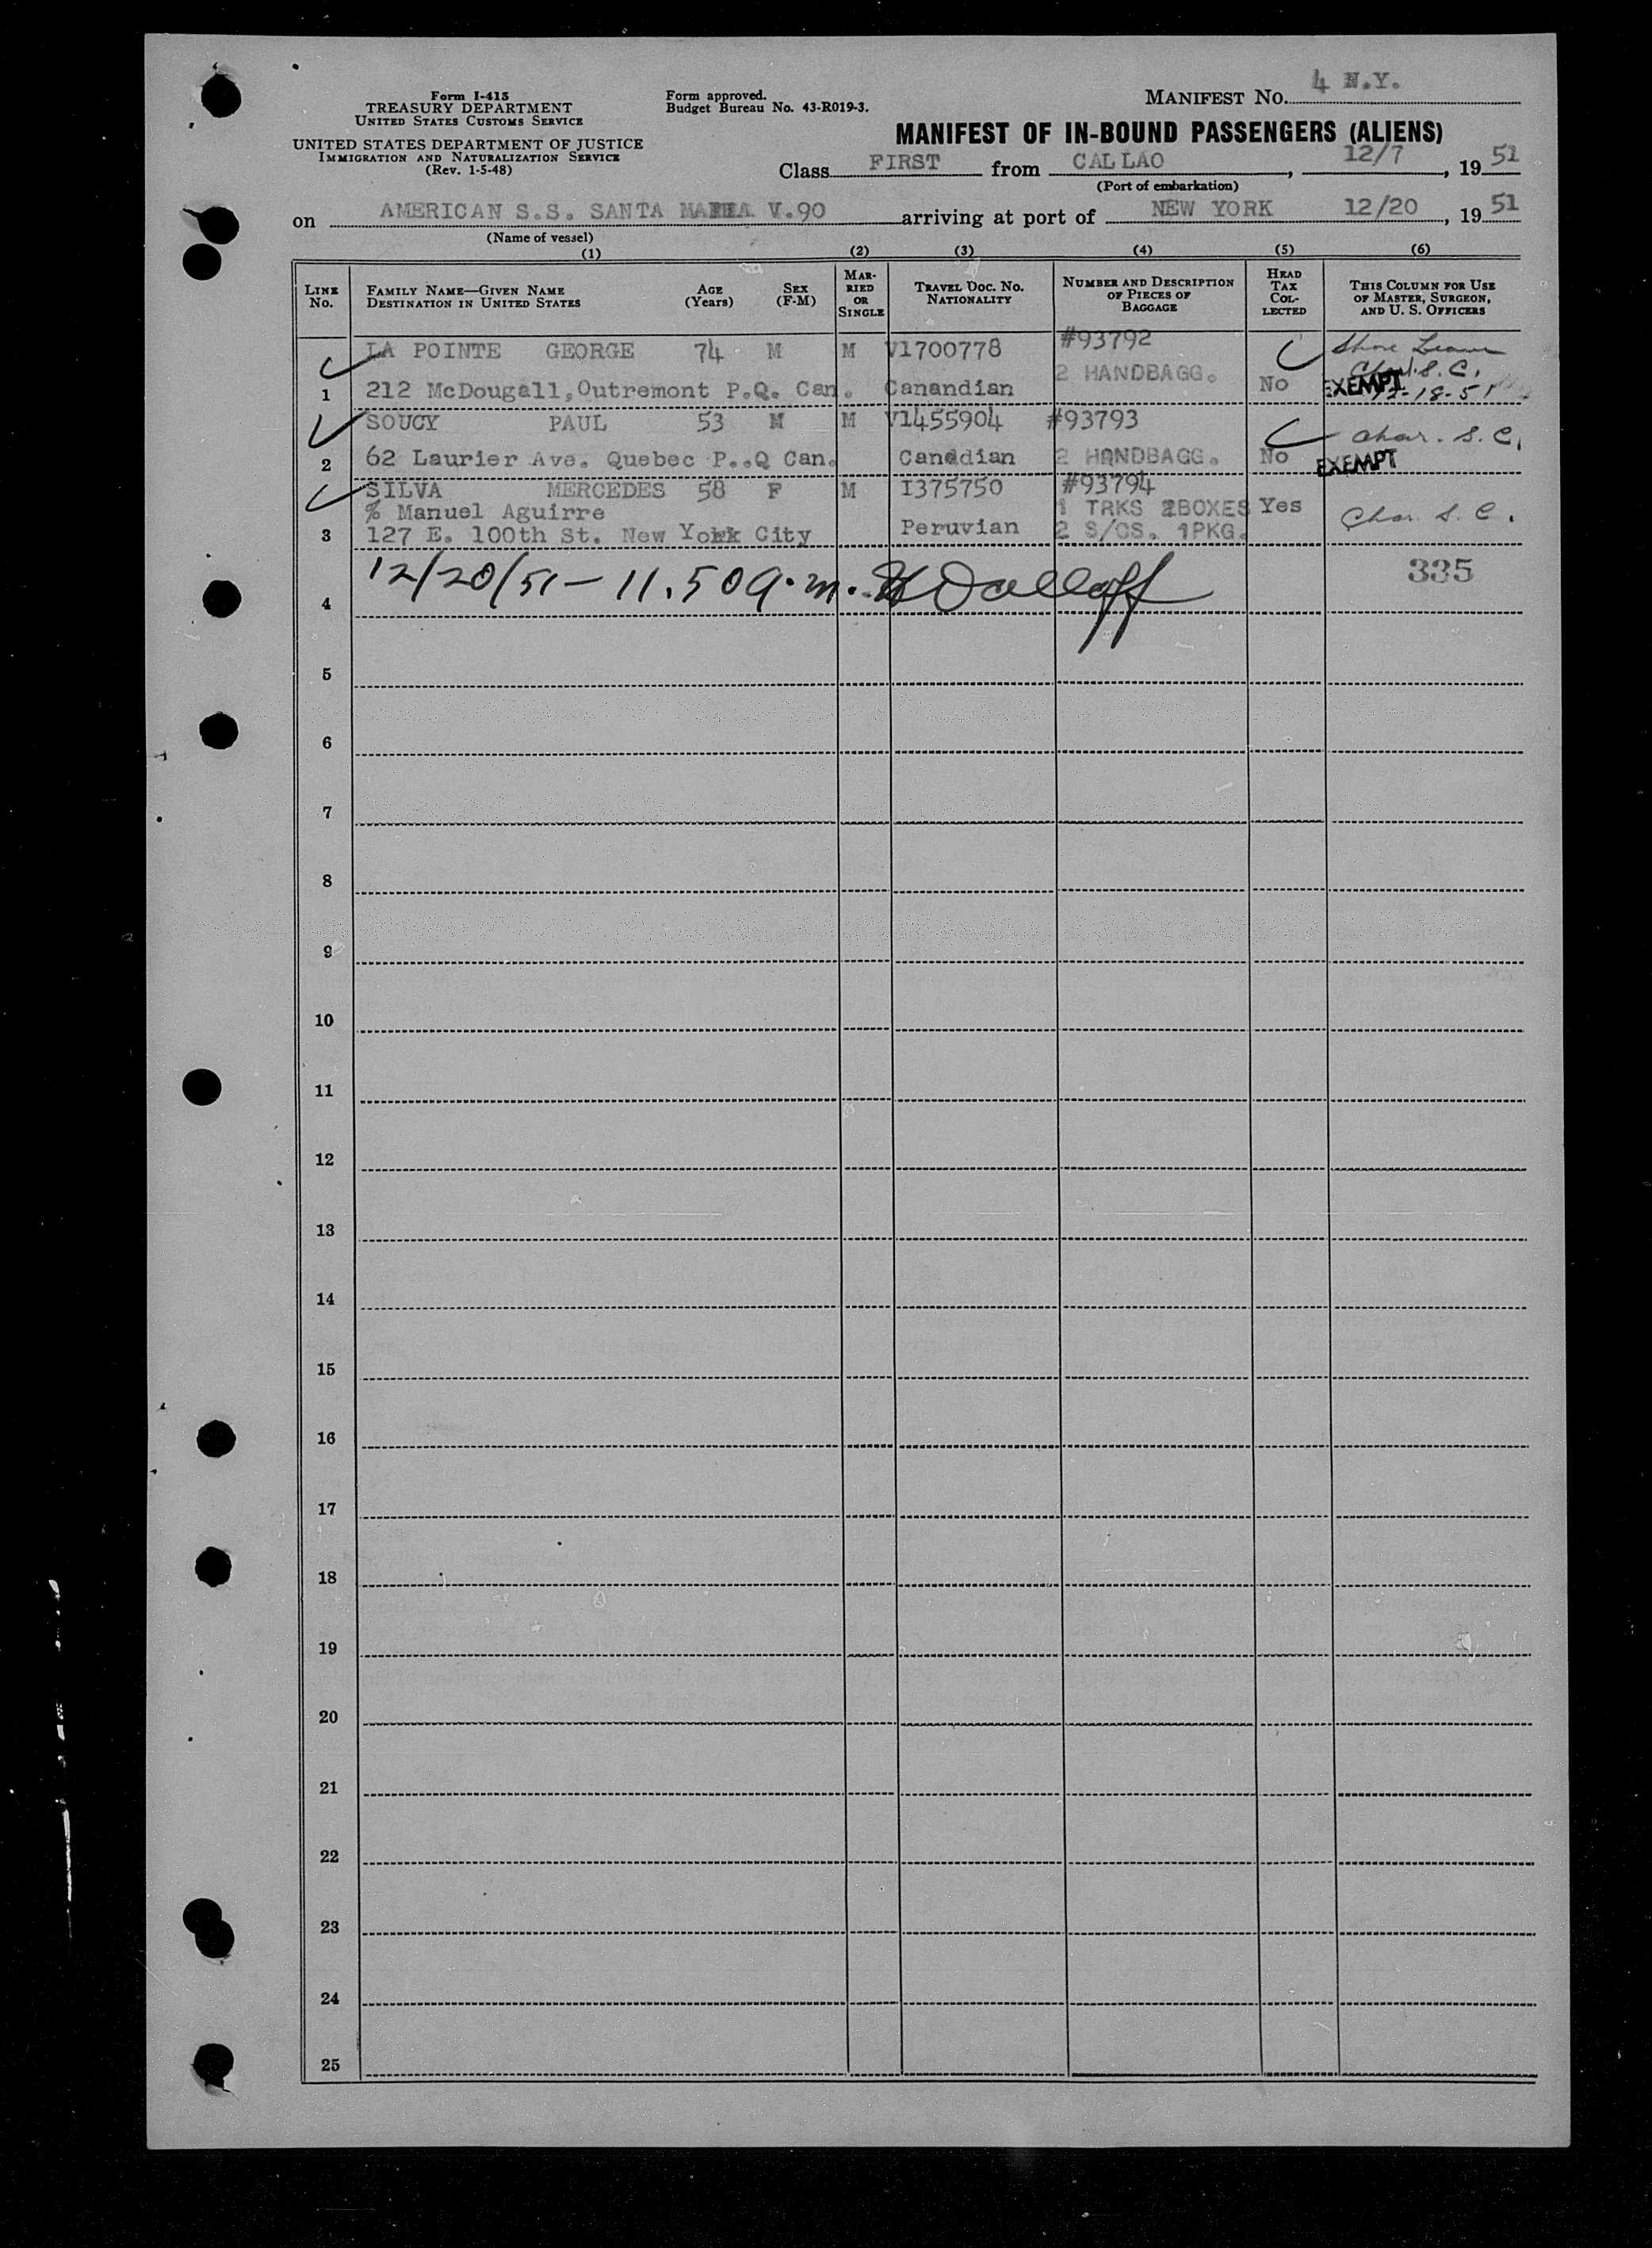 Form I-415
TREASURY DEPARTMENT
UNITED STATES CUSTOMS SERVICE
UNITED STATES DEPARTMENT OF JUSTICE
IMMIGRATION AND NATURALIZATION SERVICE
(Rev. 1-5-48)
Form approved.
Budget Bureau No. 43-R019-3.
MANIFEST NO. 4 N.Y.
MANIFEST OF IN-BOUND PASSENGERS (ALIENS)
Class FIRST from CALLAO, 12/7, 1951
(Port of embarkation)
on AMERICAN S.S. SANTA V.90 arriving at port of NEW YORK 12/20, 1951
(Name of vessel)
(1) (2) (3) (4) (5) (6)
LINE No.
FAMILY NAME—GIVEN NAME
DESTINATION IN UNITED STATES
AGE (Years)
SEX (F-M)
MARRIED OR SINGLE
TRAVEL DOC. NO. NATIONALITY
NUMBER AND DESCRIPTION OF PIECES OF BAGGAGE
HEAD TAX COLLECTED
THIS COLUMN FOR USE OF MASTER, SURGEON, AND U. S. OFFICERS
LA POINTE GEORGE 74 M M V1700778 #93792 Shore Leave
2 HANDBAGG. Char. S.C.
1 212 McDougall, Outremont P.Q. Can. Canandian No EXEMPT 12-18-51
SOUCY PAUL 53 M M V1455904 #93793 Char. S.C.
2 62 Laurier Ave. Quebec P..Q Can. Canadian 2 HANDBAGG. No EXEMPT
SILVA MERCEDES 58 F M I375750 #93794
% Manuel Aguirre 1 TRKS 2BOXES Yes Char. S.C.
3 127 E. 100th St. New York City Peruvian 2 S/CS. 1PKG.
12/20/51 - 11.50 a.m. 335
4
5
6
7
8
9
10
11
12
13
14
15
16
17
18
19
20
21
22
23
24
25